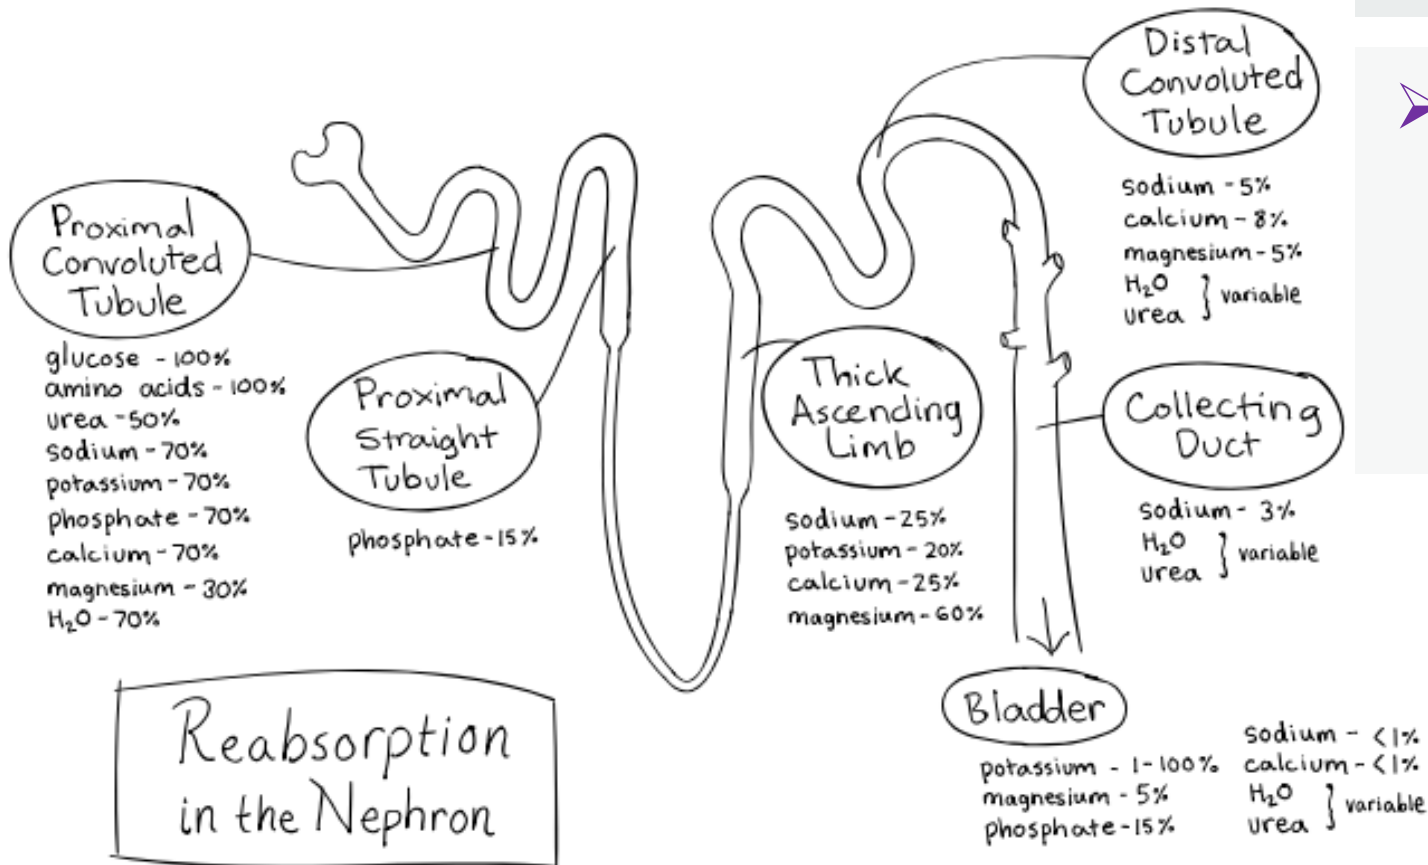 Proximal
Convoluted
Tubule
glucose - 100%
amino acids - 100%
urea - 50%
sodium - 70%
potassium - 70%
phosphate - 70%
calcium - 70%
magnesium - 30%
H₂O - 70%
Proximal
Straight
Tubule
phosphate - 15%
Thick
Ascending
Limb
sodium - 25%
potassium - 20%
calcium - 25%
magnesium - 60%
Distal
Convoluted
Tubule
sodium - 5%
calcium - 8%
magnesium - 5%
H₂O
urea } variable
Collecting
Duct
sodium - 3%
H₂O
urea } variable
Bladder
potassium - 1-100%
magnesium - 5%
phosphate - 15%
sodium - <1%
calcium - <1%
H₂O
urea } variable
Reabsorption
in the Nephron